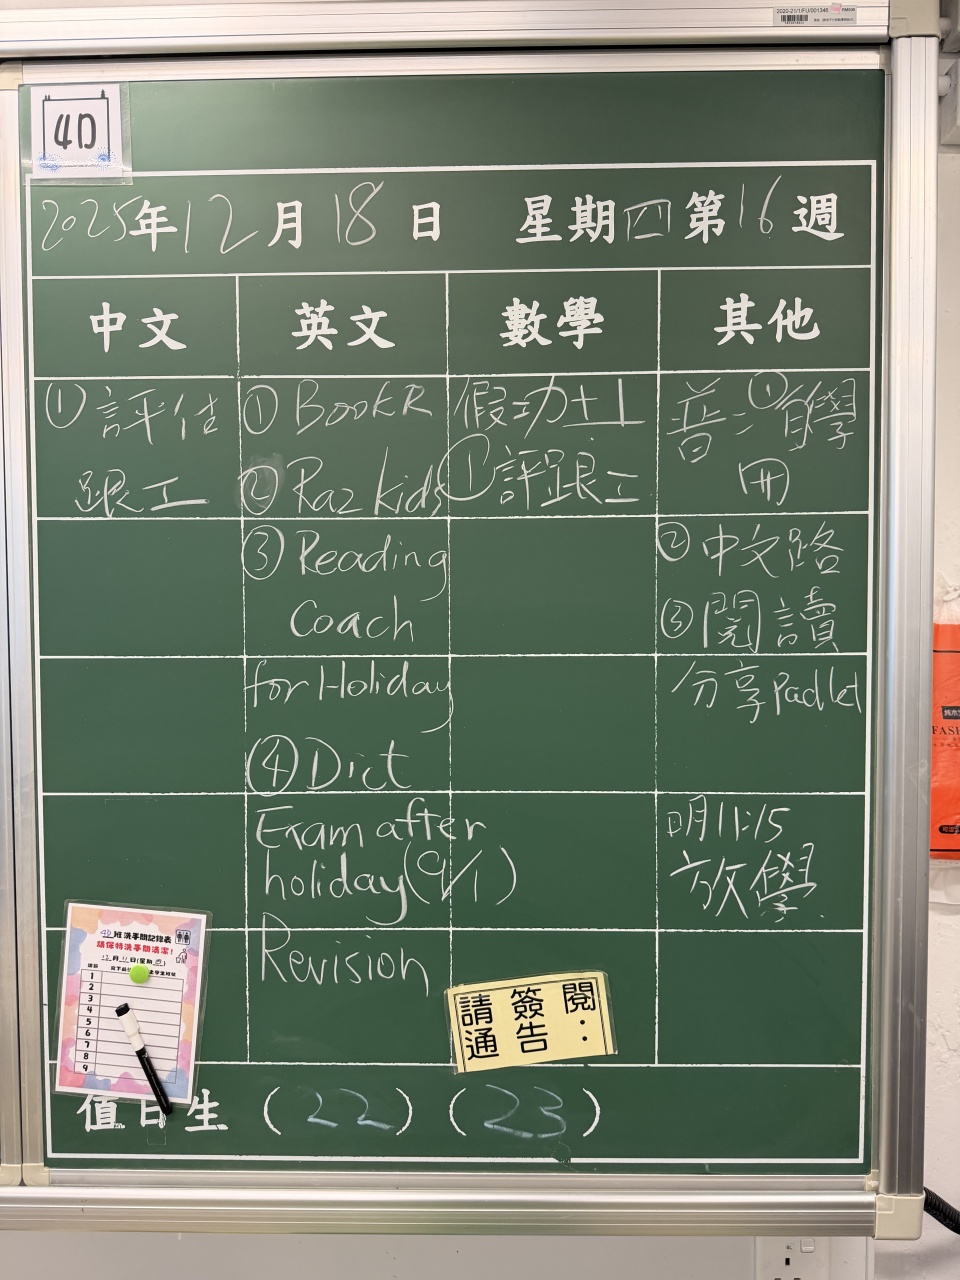 2020-21/1/FU/001346
4D
2025年12月18日 星期四第16週
中文
英文
數學
其他
①評估
跟工
①BookR
②Raz kids
③Reading
Coach
for Holiday
④Dict
Exam after
holiday(9/1)
Revision
假功土
①評跟工
普：①自學
冊
②中文路
③閱讀
分享Padlet
明11:15
放學
4D班洗手間記錄表
請保持洗手間清潔！
12月11日(星期四)
1
2
3
4
5
6
7
8
9
請簽閱
通告：
值日生 (22) (23)